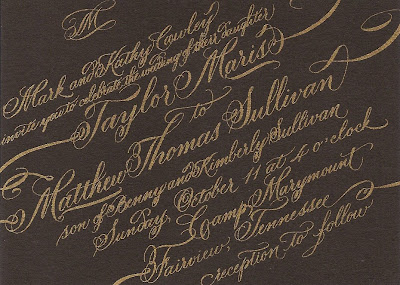 M
Mark and Kathy Cowley
invite you to celebrate the wedding of their daughter
Taylor Maris
to
Matthew Thomas Sullivan
son of Benny and Kimberly Sullivan
Sunday, October 11 at 4 o'clock
Camp Marymount
Fairview, Tennessee
reception to follow